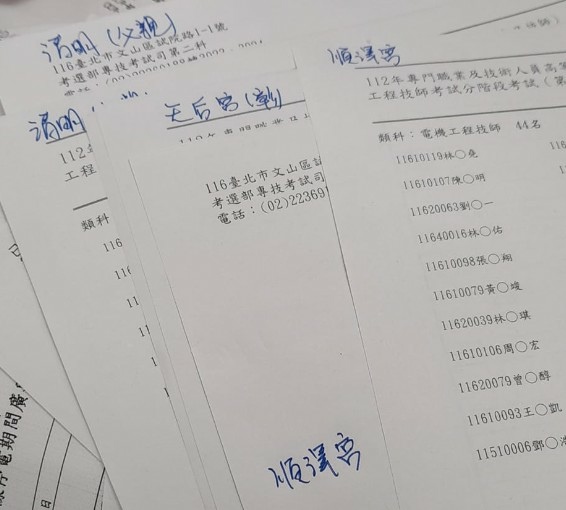 清明(父親)
116臺北市文山區試院路1-1號
考選部專技考試司第二科
清明
112年
工程
類科
116
116
11
11
天后宮(新)
116臺北市文山區試
考選部專技考試司
電話:(02)22369
順澤宮
順澤宮
112年專門職業及技術人員高等
工程技師考試分階段考試(第
類科:電機工程技師 44名
11610119林○堯
11610107陳○明
11620063劉○一
11640016林○佑
11610098張○翔
11610079黃○峻
11620039林○琪
11610106周○宏
11620079曾○醇
11610093王○凱
11510006鄧○
116
115
停電期間廣
日